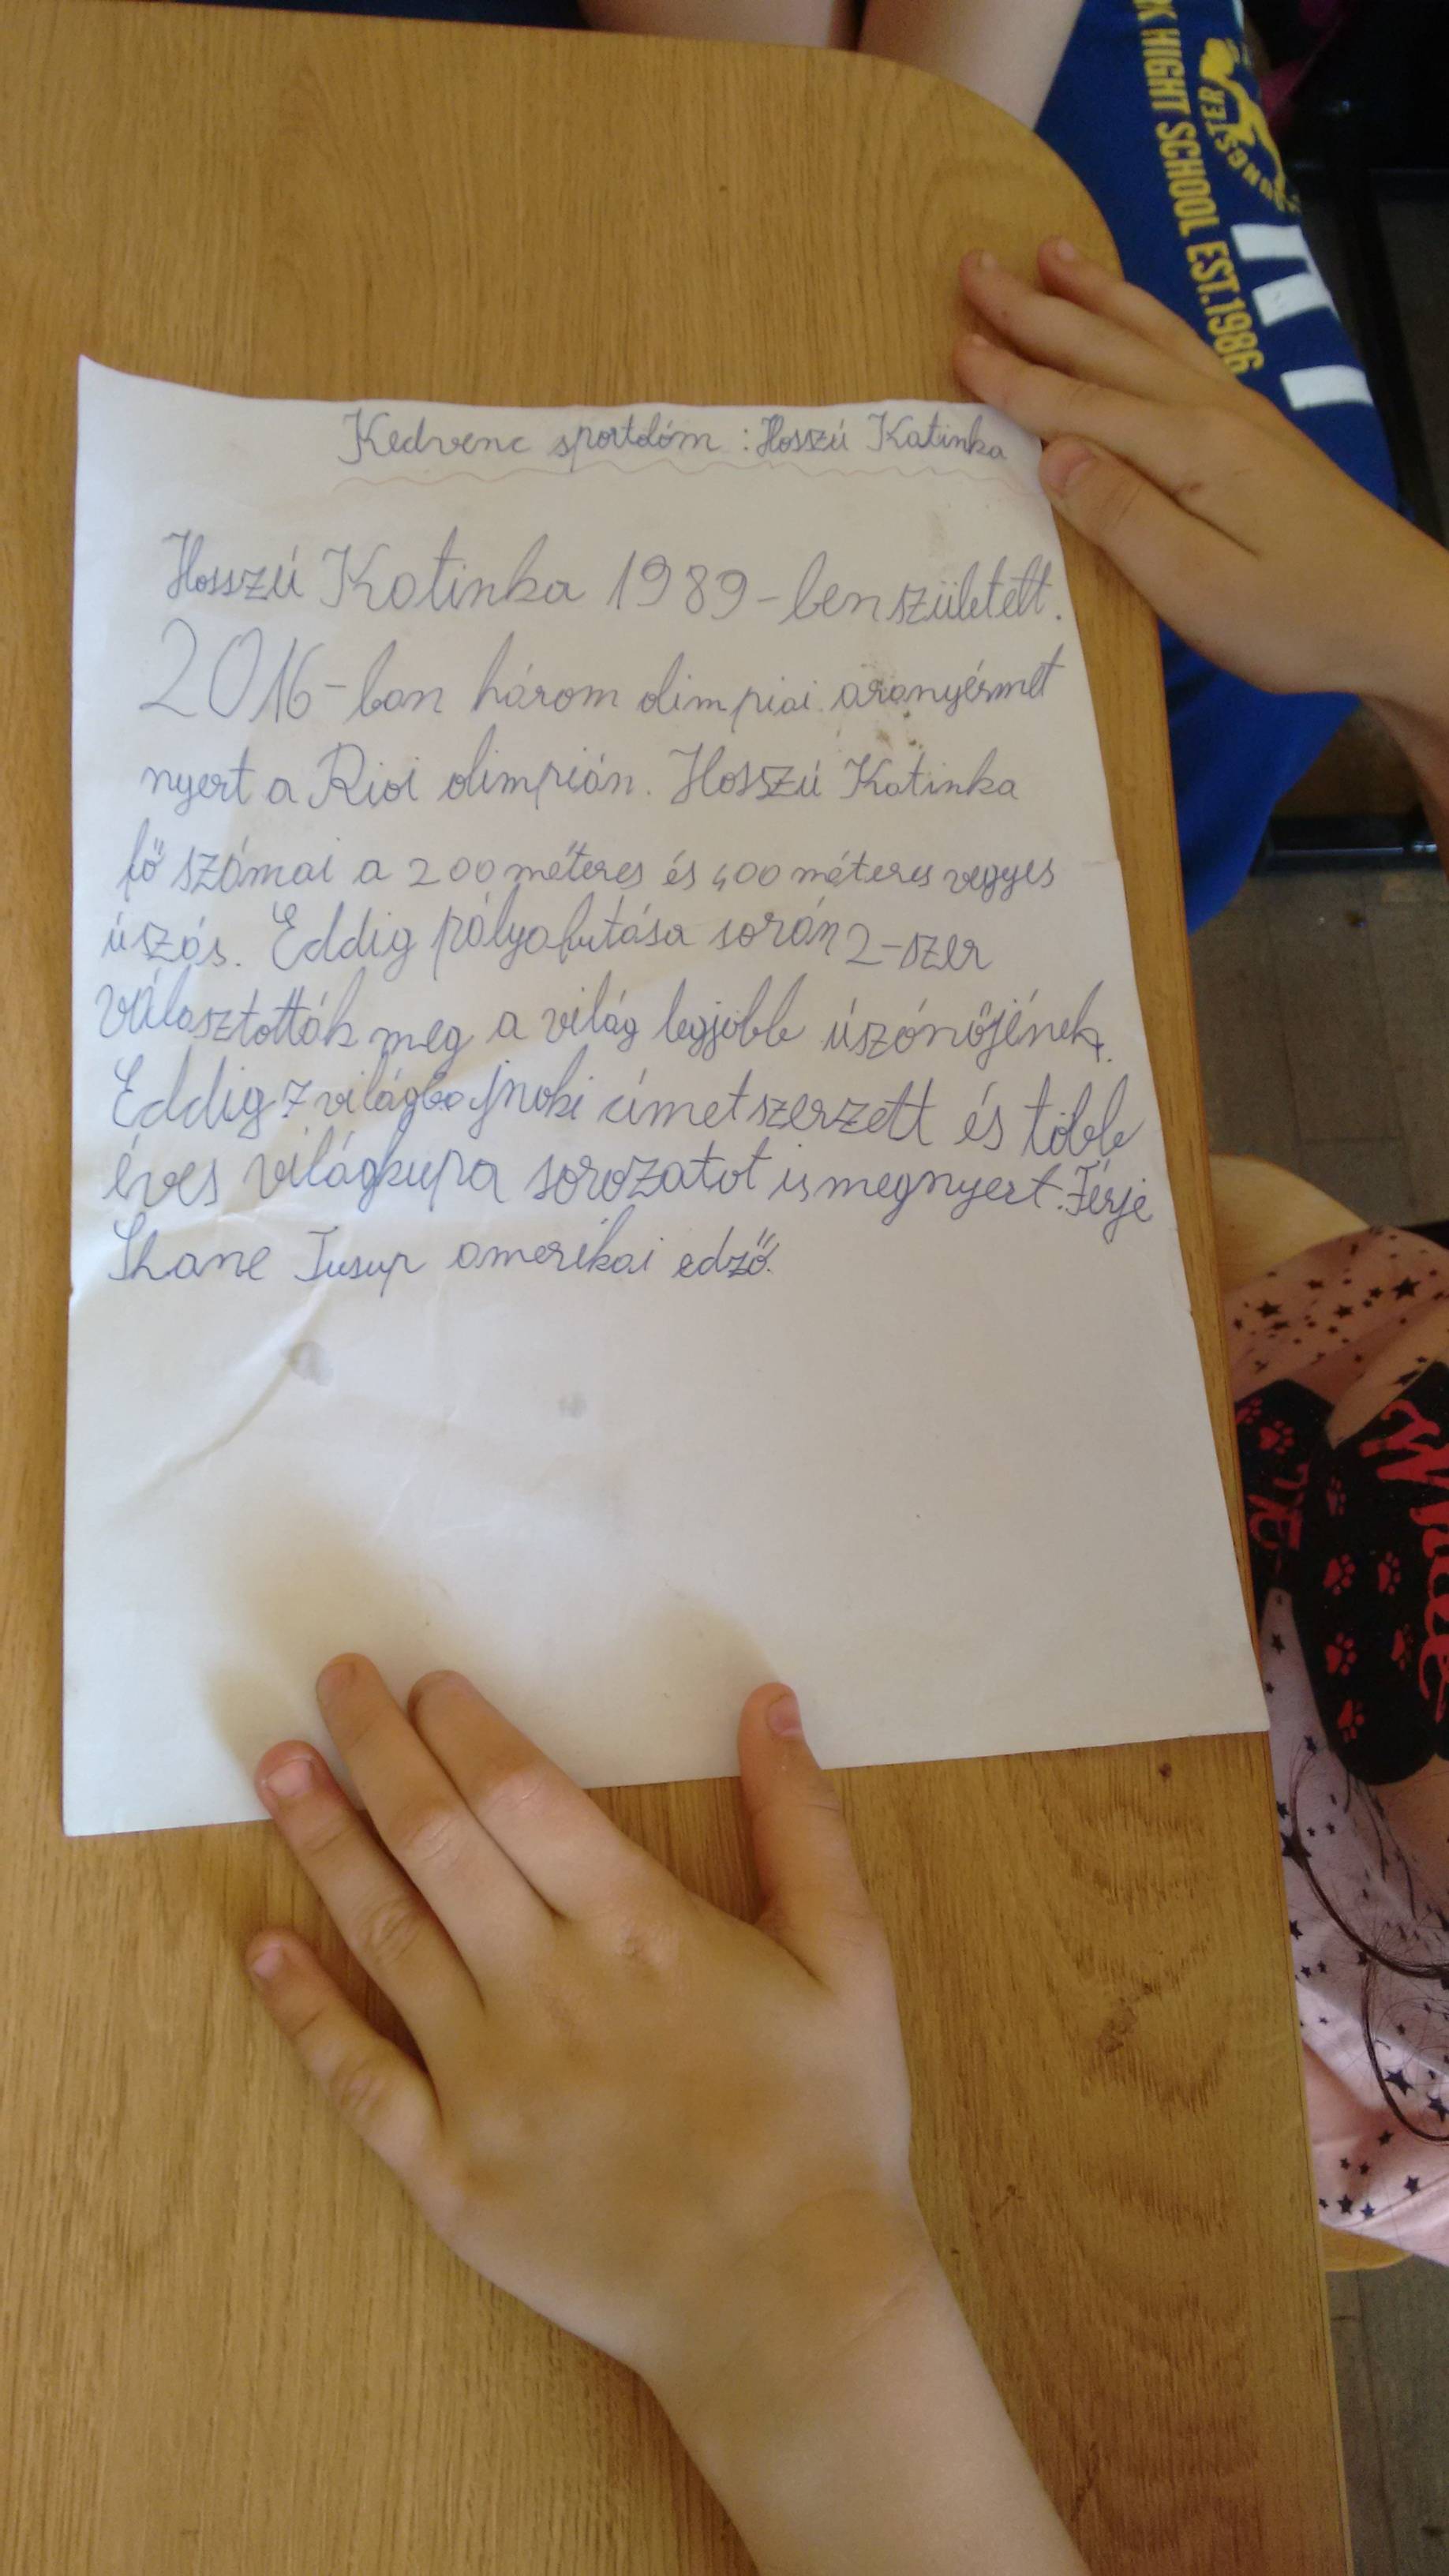 Kedvenc sportolóm : Hosszú Katinka
Hosszú Katinka 1989-ben született.
2016-ban három olimpiai aranyérmet
nyert a Rioi olimpián. Hosszú Katinka
fő számai a 200 méteres és 400 méteres vegyes
úszás. Eddig pályafutása során 2-szer
választották meg a világ legjobb úszónőjének.
Eddig 7 világbajnoki címet szerzett és több
éves világkupa sorozatot is megnyert. Férje
Shane Tusup amerikai edző.
HIGHT SCHOOL EST.1986